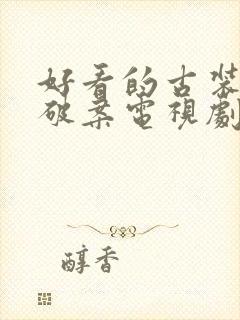 好看的古裝
破案電視劇
醇香